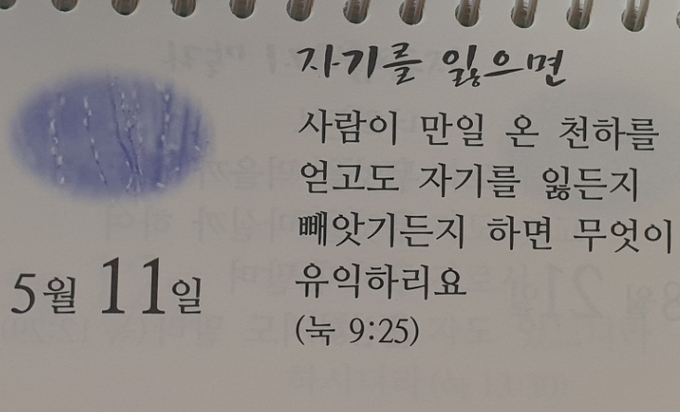 자기를 잃으면
사람이 만일 온 천하를
얻고도 자기를 잃든지
빼앗기든지 하면 무엇이
유익하리요
(눅 9:25)
5월 11일